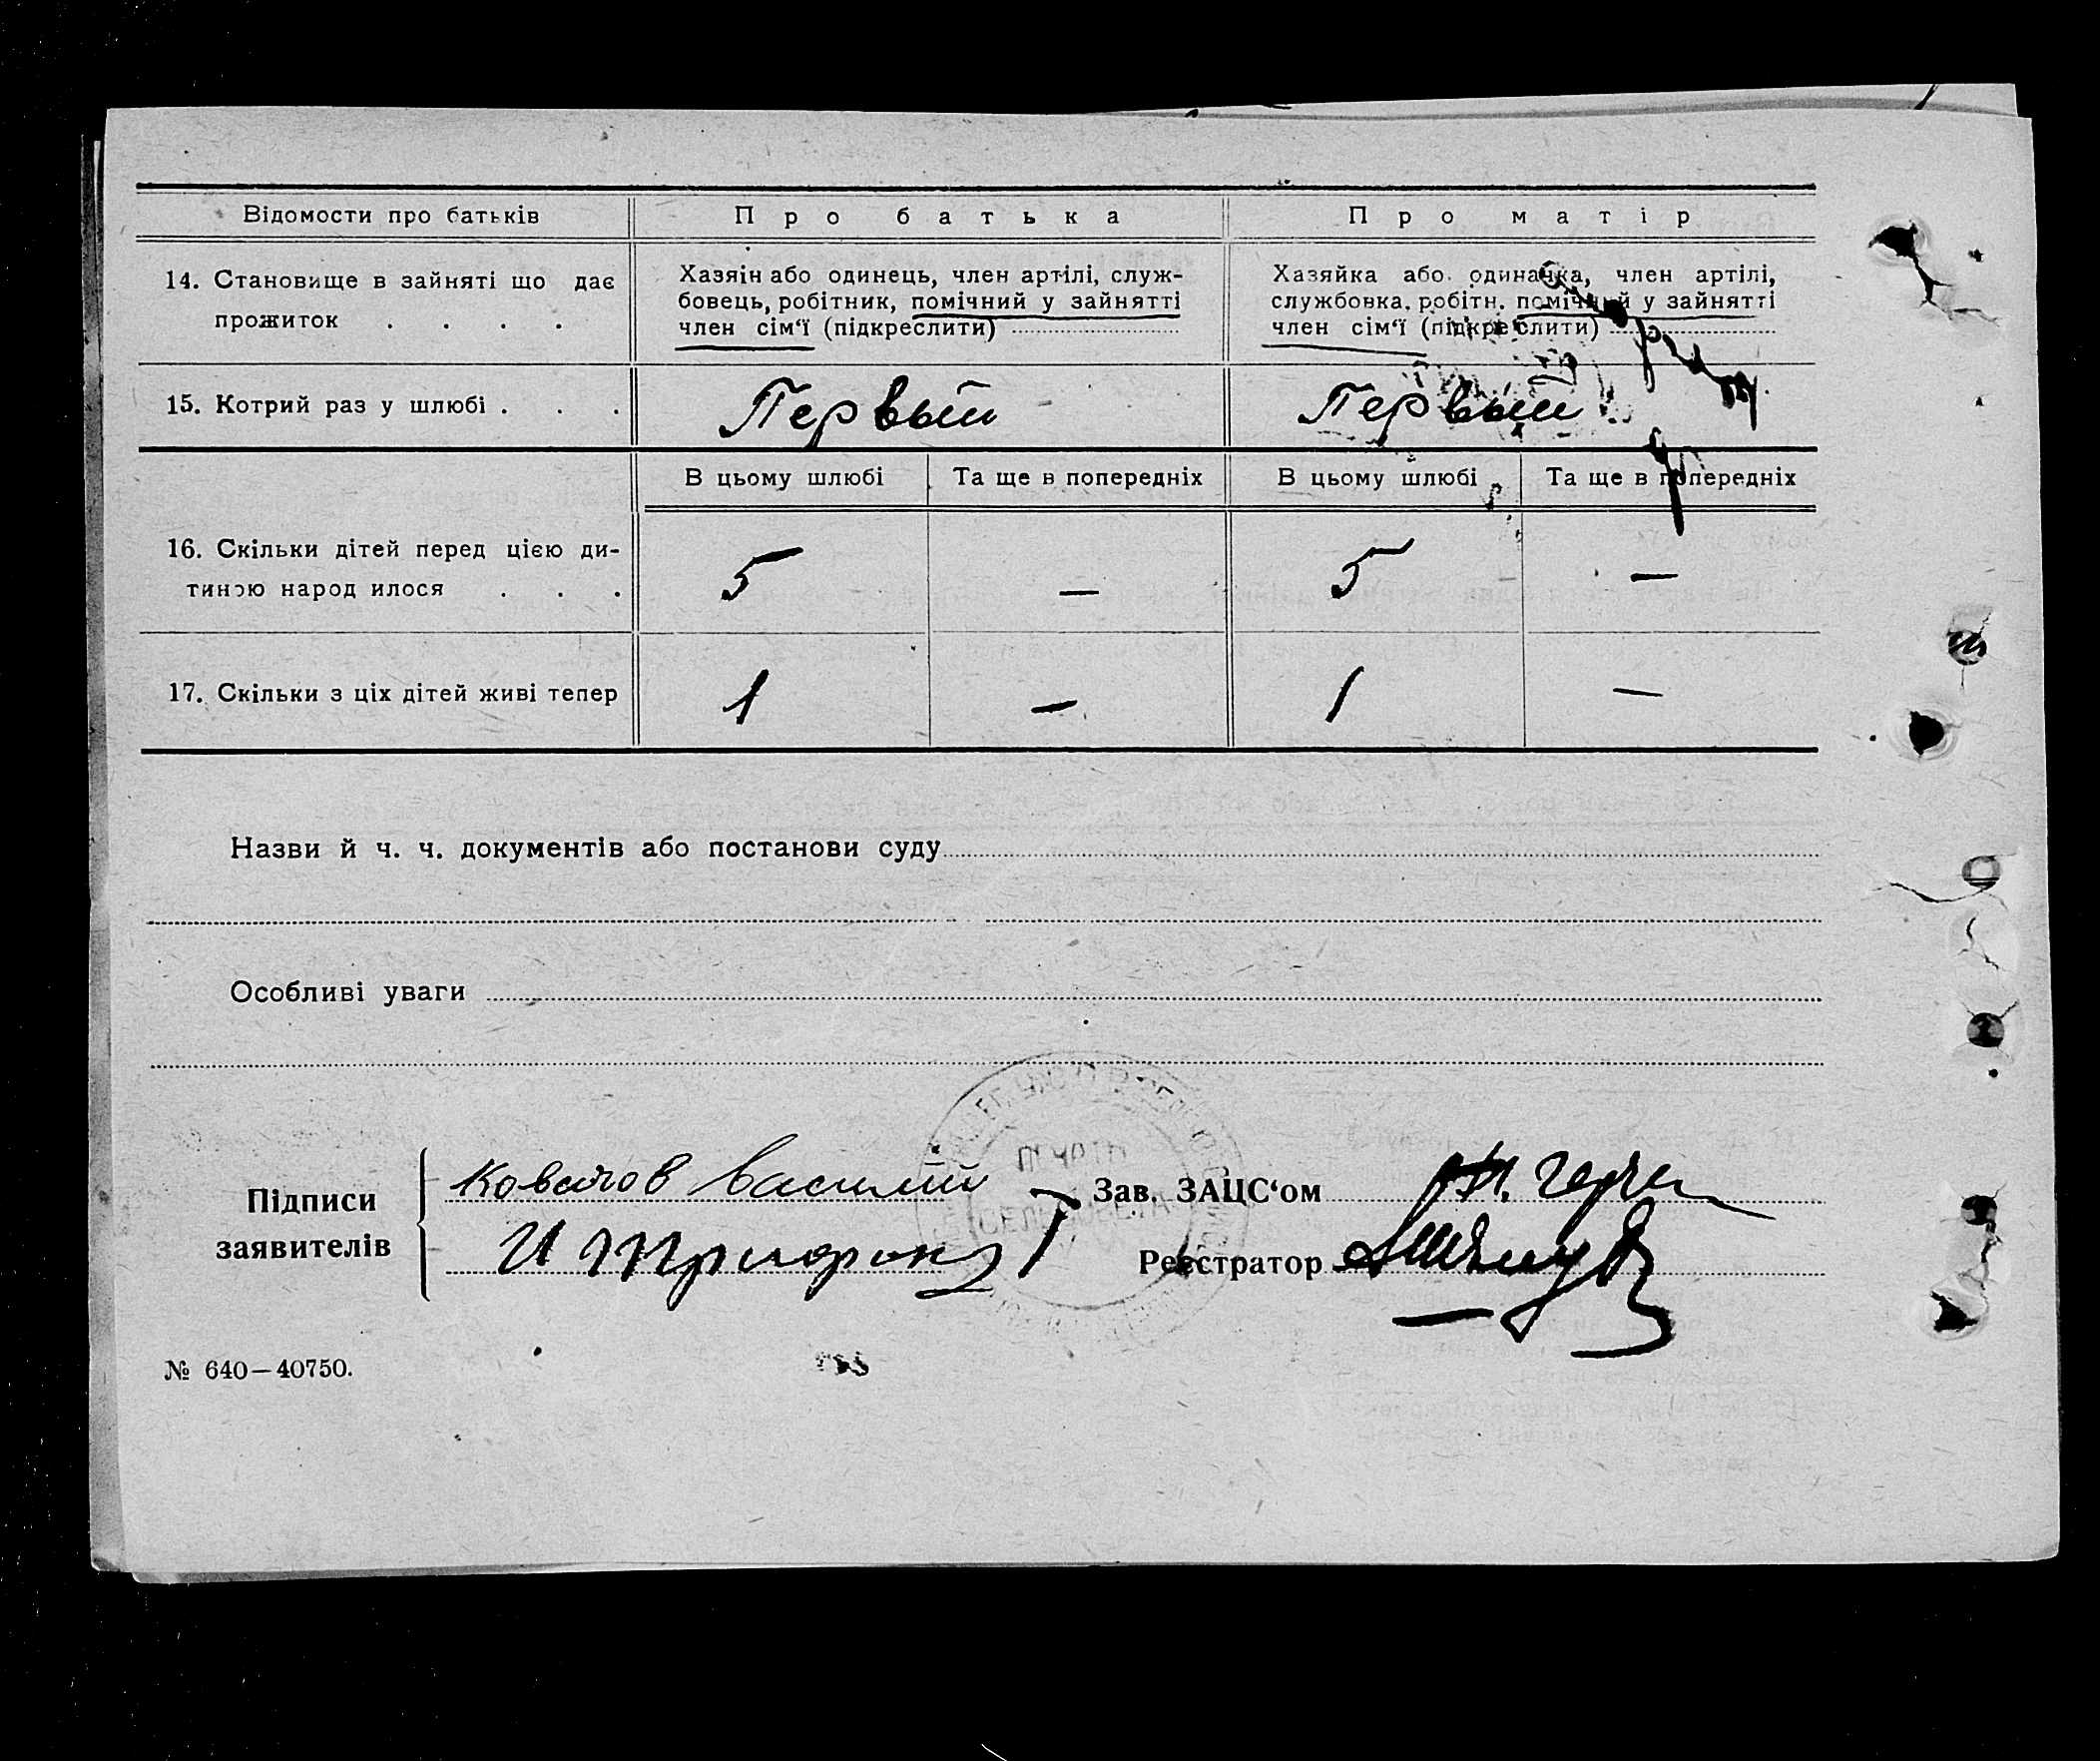 Відомости про батьків
Про батька
Про матір
14. Становище в зайняті що дає
прожиток . . . .
Хазяін або одинець, член артілі, служ-
бовець, робітник, помічний у зайнятті
член сім‘ї (підкреслити)
Хазяйка або одиначка, член артілі,
службовка, робітн. помічний у зайнятті
член сім‘ї (підкреслити)
15. Котрий раз у шлюбі . . .
Первый
Первый
В цьому шлюбі
Та ще в попередніх
В цьому шлюбі
Та ще в попередніх
16. Скільки дітей перед цією ди-
тиною народ илося . . .
5
—
5
—
17. Скільки з ціх дітей живі тепер
1
—
1
—
Назви й ч. ч. документів або постанови суду
Особливі уваги
Підписи
заявителів
Василий
Зав. ЗАЦС‘ом
Реєстратор
№ 640—40750.